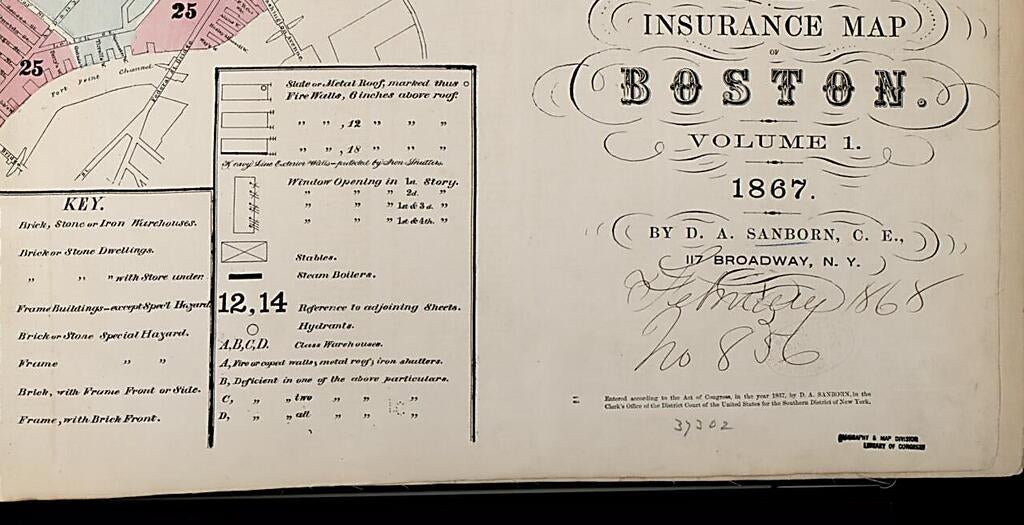 25
25
Fort Point Channel
Federal St. Bridge
INSURANCE MAP
OF
BOSTON.
VOLUME 1.
1867.
BY D. A. SANBORN, C. E.,
117 BROADWAY, N. Y.
February 1868
No 836
Entered according to the Act of Congress, in the year 1867, by D. A. SANBORN, in the
Clerk's Office of the District Court of the United States for the Southern District of New York.
37302
GEOGRAPHY & MAP DIVISION
LIBRARY OF CONGRESS
KEY.
Brick, Stone or Iron Warehouses.
Brick or Stone Dwellings.
" " " with Store under.
Frame Buildings—except Spec'l Hazard
Brick or Stone Special Hazard.
Frame " "
Brick, with Frame Front or Side.
Frame, with Brick Front.
Slate or Metal Roof, marked thus o
Fire Walls, 6 inches above roof.
" " , 12 " " "
" " , 18 " " "
Heavy Line Exterior Walls—protected by Iron Shutters.
Window Opening in 1st. Story.
" " " 2d. "
" " " 1st & 3d. "
" " " 1st & 4th. "
Stables.
Steam Boilers.
12,14 Reference to adjoining Sheets.
Hydrants.
A,B,C,D. Class Warehouses.
A, Fire or coped walls, metal roof, iron shutters.
B, Deficient in one of the above particulars.
C, " " two " " "
D, " " all " " "